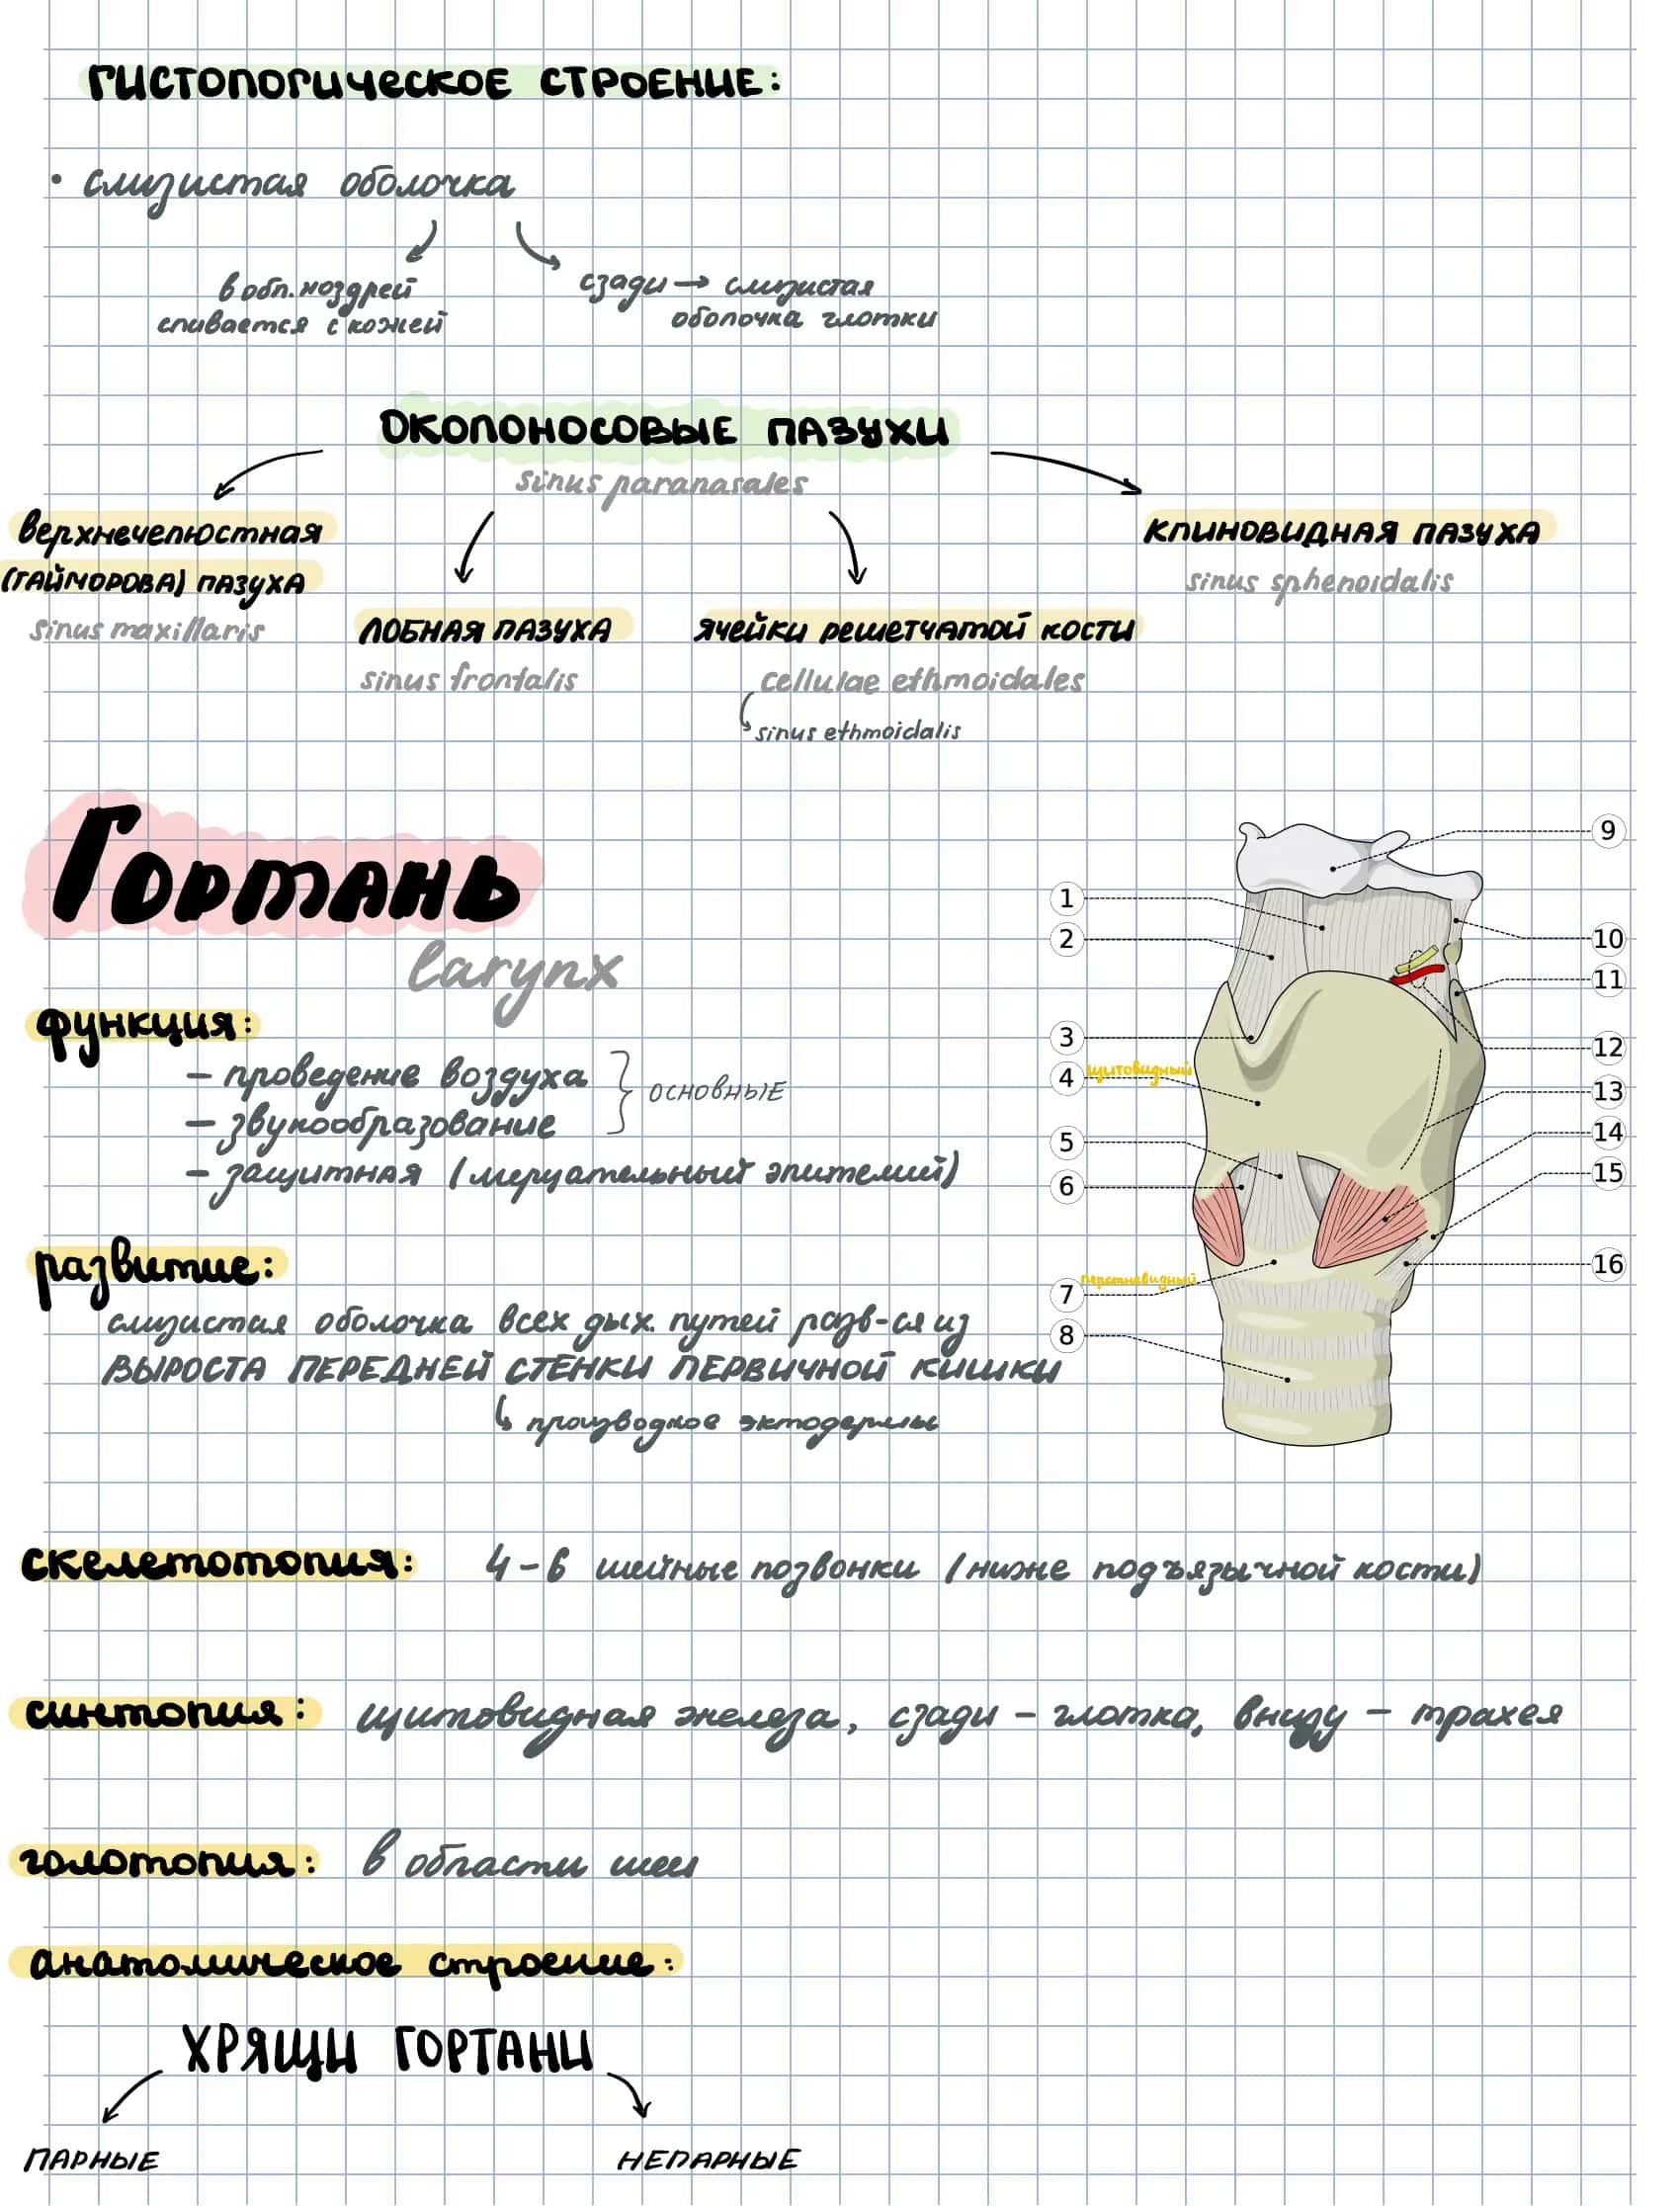 ГИСТОЛОГИЧЕСКОЕ СТРОЕНИЕ:
• слизистая оболочка
в обл. ноздрей
сливается с кожей
сзади → слизистая
оболочка глотки
ОКОЛОНОСОВЫЕ ПАЗУХИ
sinus paranasales
верхнечелюстная
(ГАЙМОРОВА) ПАЗУХА
sinus maxillaris
ЛОБНАЯ ПАЗУХА
sinus frontalis
ЯЧЕЙКИ РЕШЕТЧАТОЙ КОСТИ
cellulae ethmoidales
sinus ethmoidalis
КЛИНОВИДНАЯ ПАЗУХА
sinus sphenoidalis
Гортань
larynx
функция:
– проведение воздуха
– звукообразование
основные
– защитная (мерцательный эпителий)
развитие:
слизистая оболочка всех дых. путей разв-ся из
ВЫРОСТА ПЕРЕДНЕЙ СТЕНКИ ПЕРВИЧНОЙ КИШКИ
производное эктодермы
1
2
3
щитовидный
4
5
6
перстневидный
7
8
9
10
11
12
13
14
15
16
скелетотопия: 4-6 шейные позвонки (ниже подъязычной кости)
синтопия: щитовидная железа, сзади – глотка, внизу – трахея
голотопия: в области шеи
анатомическое строение:
ХРЯЩИ ГОРТАНИ
ПАРНЫЕ
НЕПАРНЫЕ